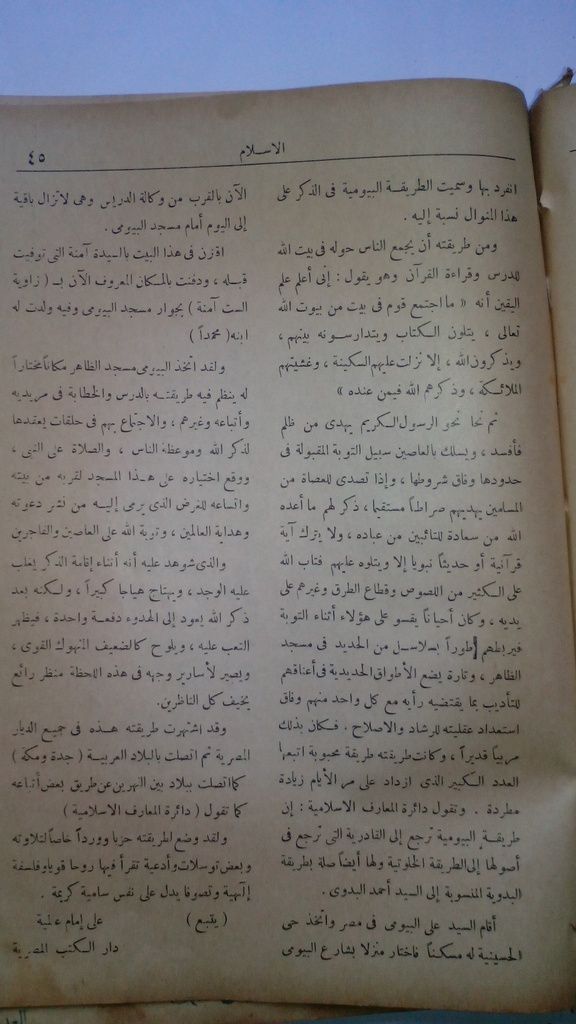 الاسلام
٤٥
انفرد بها وسميت الطريقة البيومية فى الذكر على
هذا المنوال نسبة إليه .
ومن طريقته أن يجمع الناس حوله فى بيت الله
للدرس وقراءة القرآن وهو يقول : إنى أعلم علم
اليقين أنه « ما اجتمع قوم فى بيت من بيوت الله
تعالى ، يتلون الكتاب ويتدارسونه بينهم ،
ويذكرون الله ، إلا نزلت عليهم السكينة ، وغشيتهم
الملائكة ، وذكرهم الله فيمن عنده »
ثم نحا نحو الرسول الكريم يهدى من ظلم
فأفسد ، ويسلك بالعاصين سبيل التوبة المقبولة فى
حدودها وفاق شروطها ، وإذا تصدى للعصاة من
المسلمين يهديهم صراطاً مستقيما ، ذكر لهم ما أعده
الله من سعادة للتائبين من عباده ، ولا يترك آية
قرآنية أو حديثاً نبويا إلا ويتلوه عليهم فتاب الله
على الكثير من اللصوص وقطاع الطرق وغيرهم على
يديه ، وكان أحياناً يقسو على هؤلاء أثناء التوبة
فيربطهم طوراً بسلاسل من الحديد فى مسجد
الظاهر ، وتارة يضع الأطواق الحديدية فى أعناقهم
للتأديب بما يقتضيه رأيه مع كل واحد منهم وفاق
استعداد عقليته للرشاد والاصلاح . فكان بذلك
مربياً قديراً ، وكانت طريقته طريقة محبوبة اتبعها
العدد الكبير الذى ازداد على مر الأيام زيادة
مطردة . وتقول دائرة المعارف الاسلامية : إن
طريقة البيومية ترجع إلى القادرية التى ترجع فى
أصولها إلى الطريقة الخلوتية ولها أيضاً صلة بطريقة
البدوية المنسوبة إلى السيد أحمد البدوى .
أقام السيد على البيومى فى مصر واتخذ حى
الحسينية له مسكناً فاختار منزلا بشارع البيومى
الآن بالقرب من وكالة الدريس وهى لا تزال باقية
إلى اليوم أمام مسجد البيومى .
اقترن فى هذا البيت بالسيدة آمنة التى توفيت
قبله ، ودفنت بالمكان المعروف الآن بـ ( زاوية
الست آمنة ) بجوار مسجد البيومى وفيه ولدت له
ابنه ( محمداً )
ولقد اتخذ البيومى مسجد الظاهر مكاناً مختاراً
له ينظم فيه طريقته بالدرس والخطابة فى مريديه
وأتباعه وغيرهم ، والاجتماع بهم فى حلقات يعقدها
لذكر الله وموعظة الناس ، والصلاة على النبى ،
ووقع اختياره على هذا المسجد لقربه من بيته
واتساعه للغرض الذى يرمى إليه من نشر دعوته
وهداية العالمين ، وتوبة الله على العاصين والفاجرين
والذى شوهد عليه أنه أثناء إقامة الذكر يغلب
عليه الوجد ، ويهتاج هياجا كبيراً ، ولكنه بعد
ذكر الله يعود إلى الهدوء دفعة واحدة ، فيظهر
التعب عليه ، ويلوح كالضعيف المنهوك القوى ،
ويصير لأسارير وجهه فى هذه اللحظة منظر رائع
يخيف كل الناظرين .
وقد اشتهرت طريقته هذه فى جميع الديار
المصرية ثم اتصلت بالبلاد العربية ( جدة ومكة )
كما اتصلت ببلاد بين النهرين عن طريق بعض أتباعه
كما تقول ( دائرة المعارف الاسلامية )
ولقد وضع لطريقته حزبا وورداً خاصاً لتلاوته
وبعض توسلات وأدعية تقرأ فيها روحا قويا وفلسفة
إلهية وتصوفا يدل على نفس سامية كريمة .
( يتبع )
على إمام عطية
دار الكتب المصرية